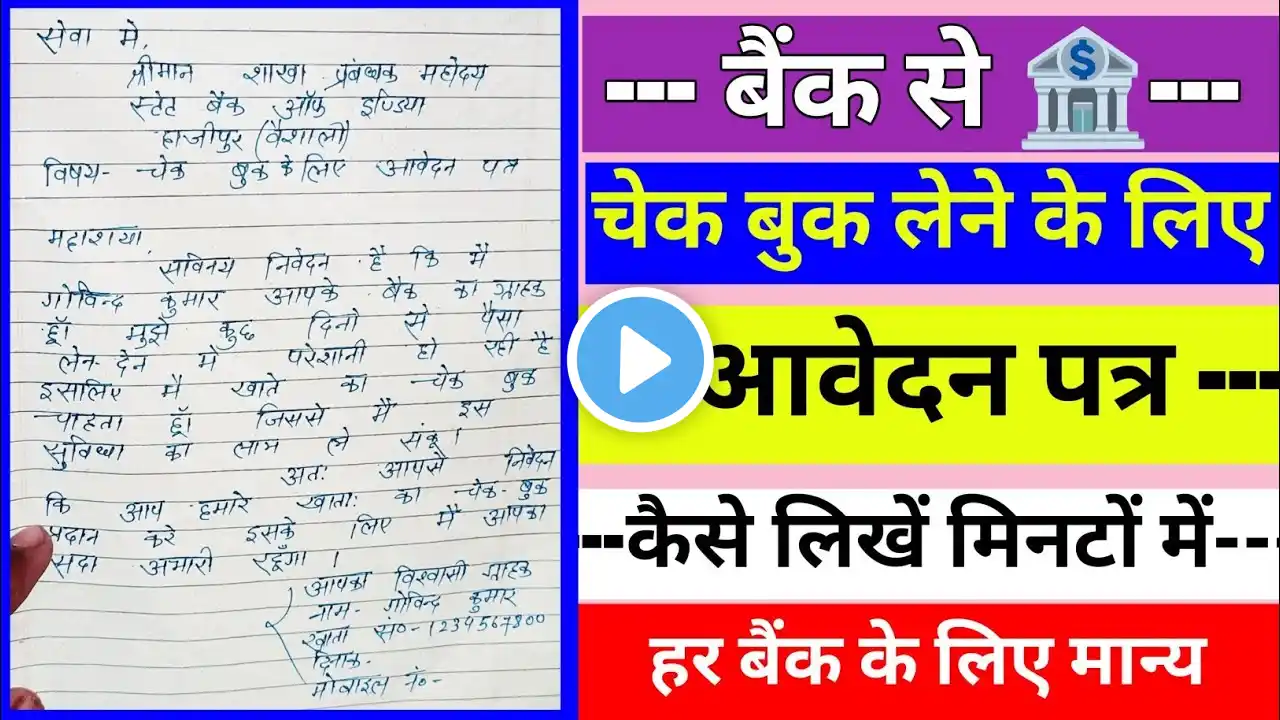 सेवा मे,
श्रीमान शाखा प्रबंधक महोदय
स्टेट बैंक ऑफ इण्डिया
हाजीपुर (वैशाली)
विषय- चेक बुक के लिए आवेदन पत्र
महाशय,
सविनय निवेदन है कि मै
गोविन्द कुमार आपके बैक का ग्राहक
हूँ। मुझे कुछ दिनो से पैसा
लेन-देन में परेशानी हो रही है
इसलिए मै खाते का चेक बुक
चाहता हूँ। जिससे मैं इस
सुविधा का लाभ ले संकू।
अतः आपसे निवेदन
कि आप हमारे खाताः का चेक-बुक
प्रदान करे इसके लिए मैं आपका
सदा अभारी रहूँगा।
आपका विश्वासी ग्राहक
नाम- गोविन्द कुमार
खाता सं०-
मोबाइल नं०-
--- बैंक से ---
चेक बुक लेने के लिए
आवेदन पत्र ---
--कैसे लिखें मिनटों में---
हर बैंक के लिए मान्य